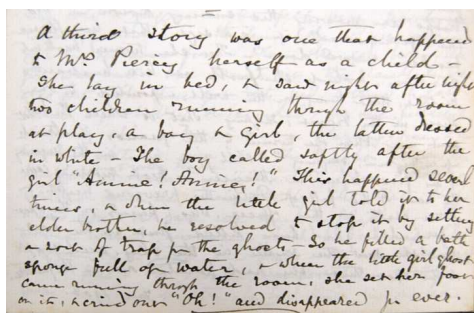 A third story was one that happened
to Mrs Piercy herself as a child -
she lay in bed, & saw night after night
two children running through the room
at play, a boy & girl, the latter dressed
in white - The boy called softly after the
girl "Annie! Annie!" This happened several
times, & when the little girl told it to her
elder brother, he resolved to stop it by setting
a sort of trap for the ghosts - So he filled a bath
sponge full of water, & when the little girl ghost
came running through the room, she set her foot
on it, & cried out "Oh!" and disappeared for ever.